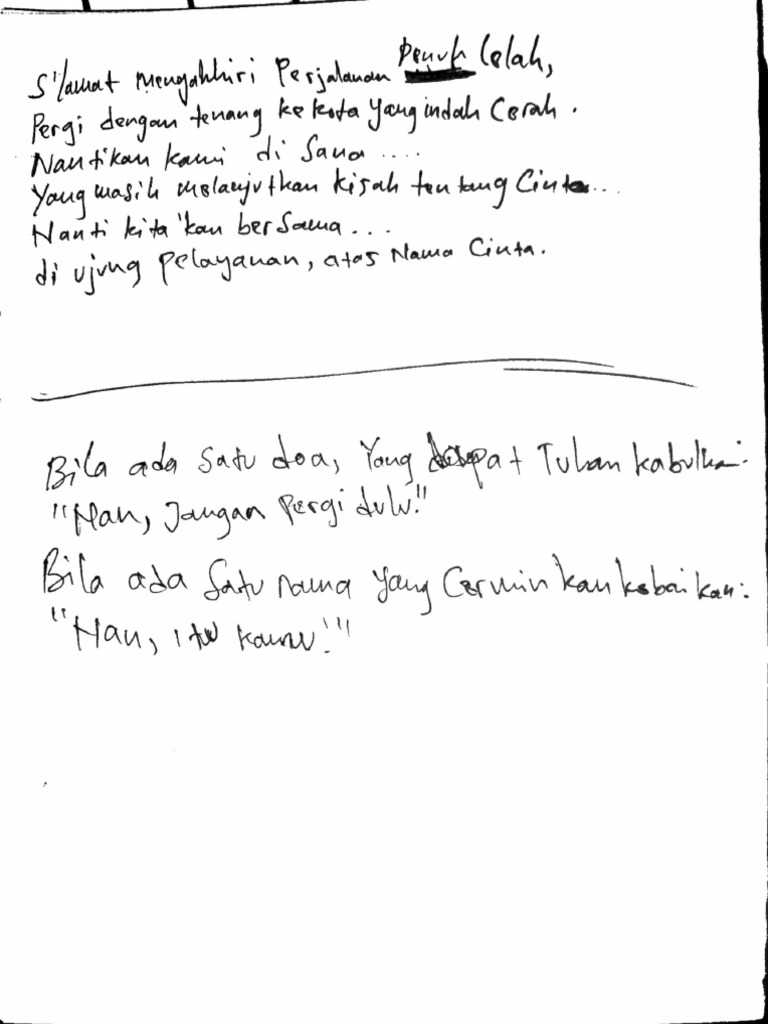 S'lamat mengakhiri Perjalanan Penuh lelah,
Pergi dengan tenang ke kota yang indah Cerah.
Nantikan kami di Sana....
Yang masih melanjutkan kisah tentang Cinta...
Nanti kita 'kan bersama...
di ujung pelayanan, atas Nama Cinta.
Bila ada satu doa, Yang dapat Tuhan kabulkan:
"Nan, Jangan Pergi dulu!"
Bila ada Satu nama yang Cerminkan kebaikan:
"Nan, itu kamu!"